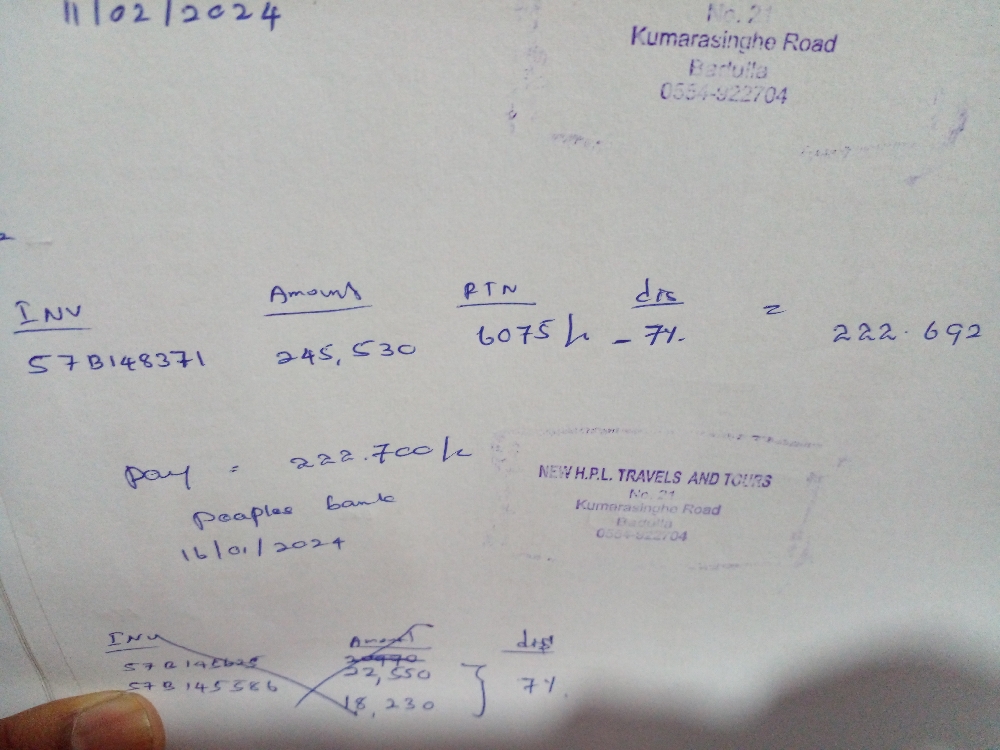 11/02/2024
No. 21
Kumarasinghe Road
Badulla
0554-922704
INV Amount RTN dis
57B148371 245,530 6075/- - 7% = 222.692
Pay = 222.700/-
Peoples bank
16/01/2024
NEW H.P.L. TRAVELS AND TOURS
No. 21
Kumarasinghe Road
Badulla
0554-922704
INV Amount dis
22,550
57B145586 18,230 } 7%